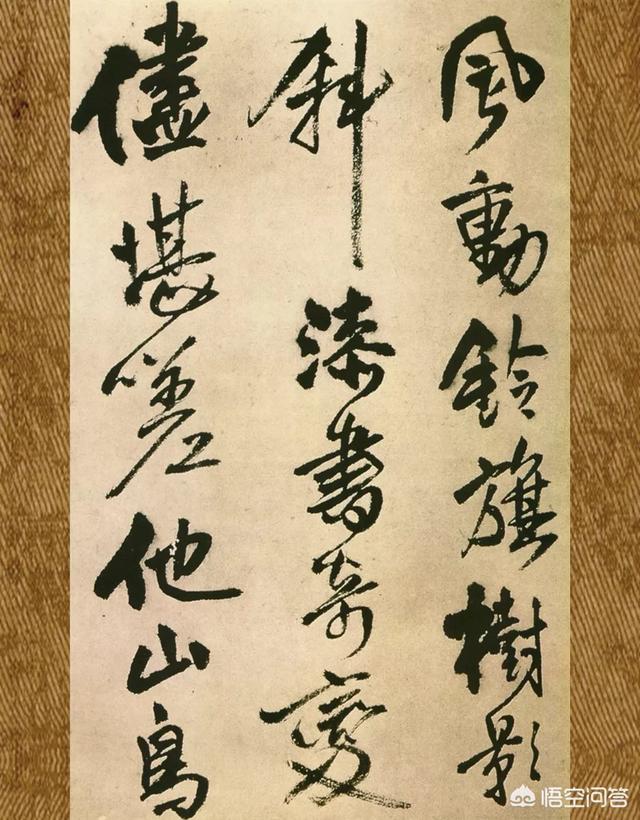 風動鈴旗樹影
斜漆書奇變
儘堪嗟他山鳥
悟空问答